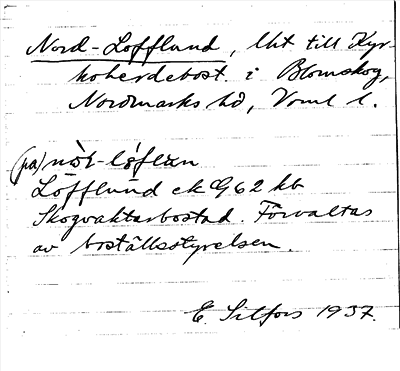 Nord-Löfflund, lht till Kyr-
koherdebost. i Blomskog,
Nordmarks hd, Vrml l.
(på) nòr-lǿflɯn
Löfflund ek G 62 kb
Skogvaktarbostad. Förvaltas
av boställsstyrelsen.
E. Silfors 1937.